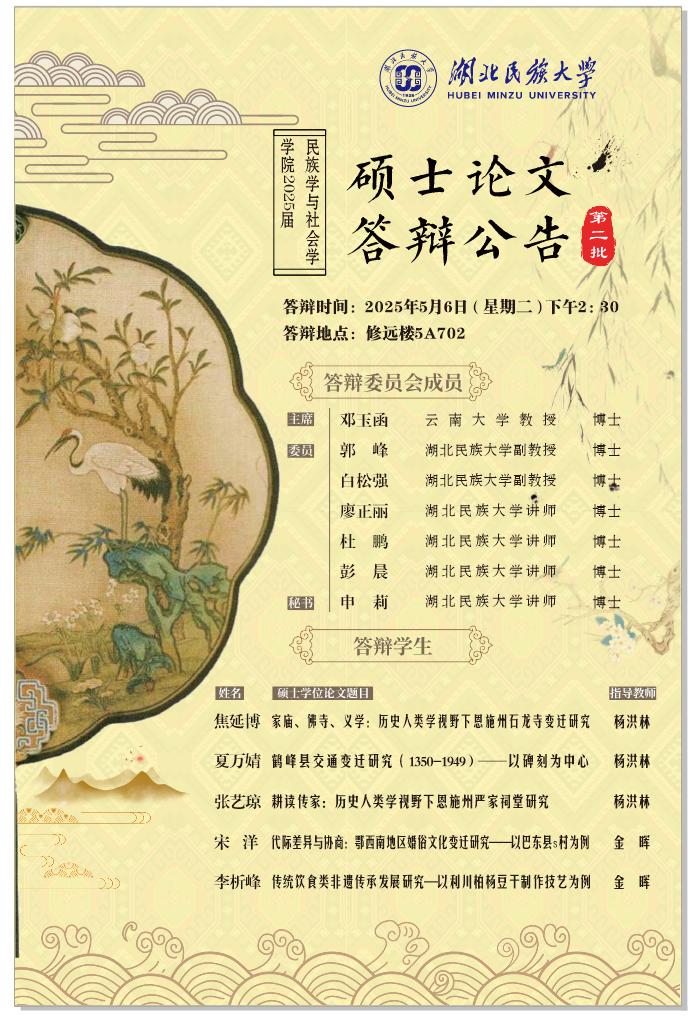 湖北民族大学
HUBEI MINZU UNIVERSITY
民族学与社会学
学院2025届
硕士论文
答辩公告
第二批
答辩时间：2025年5月6日（星期二）下午2：30
答辩地点：修远楼5A702
答辩委员会成员
主席 邓玉函 云南大学教授 博士
委员 郭峰 湖北民族大学副教授 博士
白松强 湖北民族大学副教授 博士
廖正丽 湖北民族大学讲师 博士
杜鹏 湖北民族大学讲师 博士
彭晨 湖北民族大学讲师 博士
秘书 申莉 湖北民族大学讲师 博士
答辩学生
姓名 硕士学位论文题目 指导教师
焦延博 家庙、佛寺、义学：历史人类学视野下恩施州石龙寺变迁研究 杨洪林
夏万婧 鹤峰县交通变迁研究（1350-1949）——以碑刻为中心 杨洪林
张艺琼 耕读传家：历史人类学视野下恩施州严家祠堂研究 杨洪林
宋洋 代际差异与协商：鄂西南地区婚俗文化变迁研究——以巴东县s村为例 金晖
李析峰 传统饮食类非遗传承发展研究—以利川柏杨豆干制作技艺为例 金晖